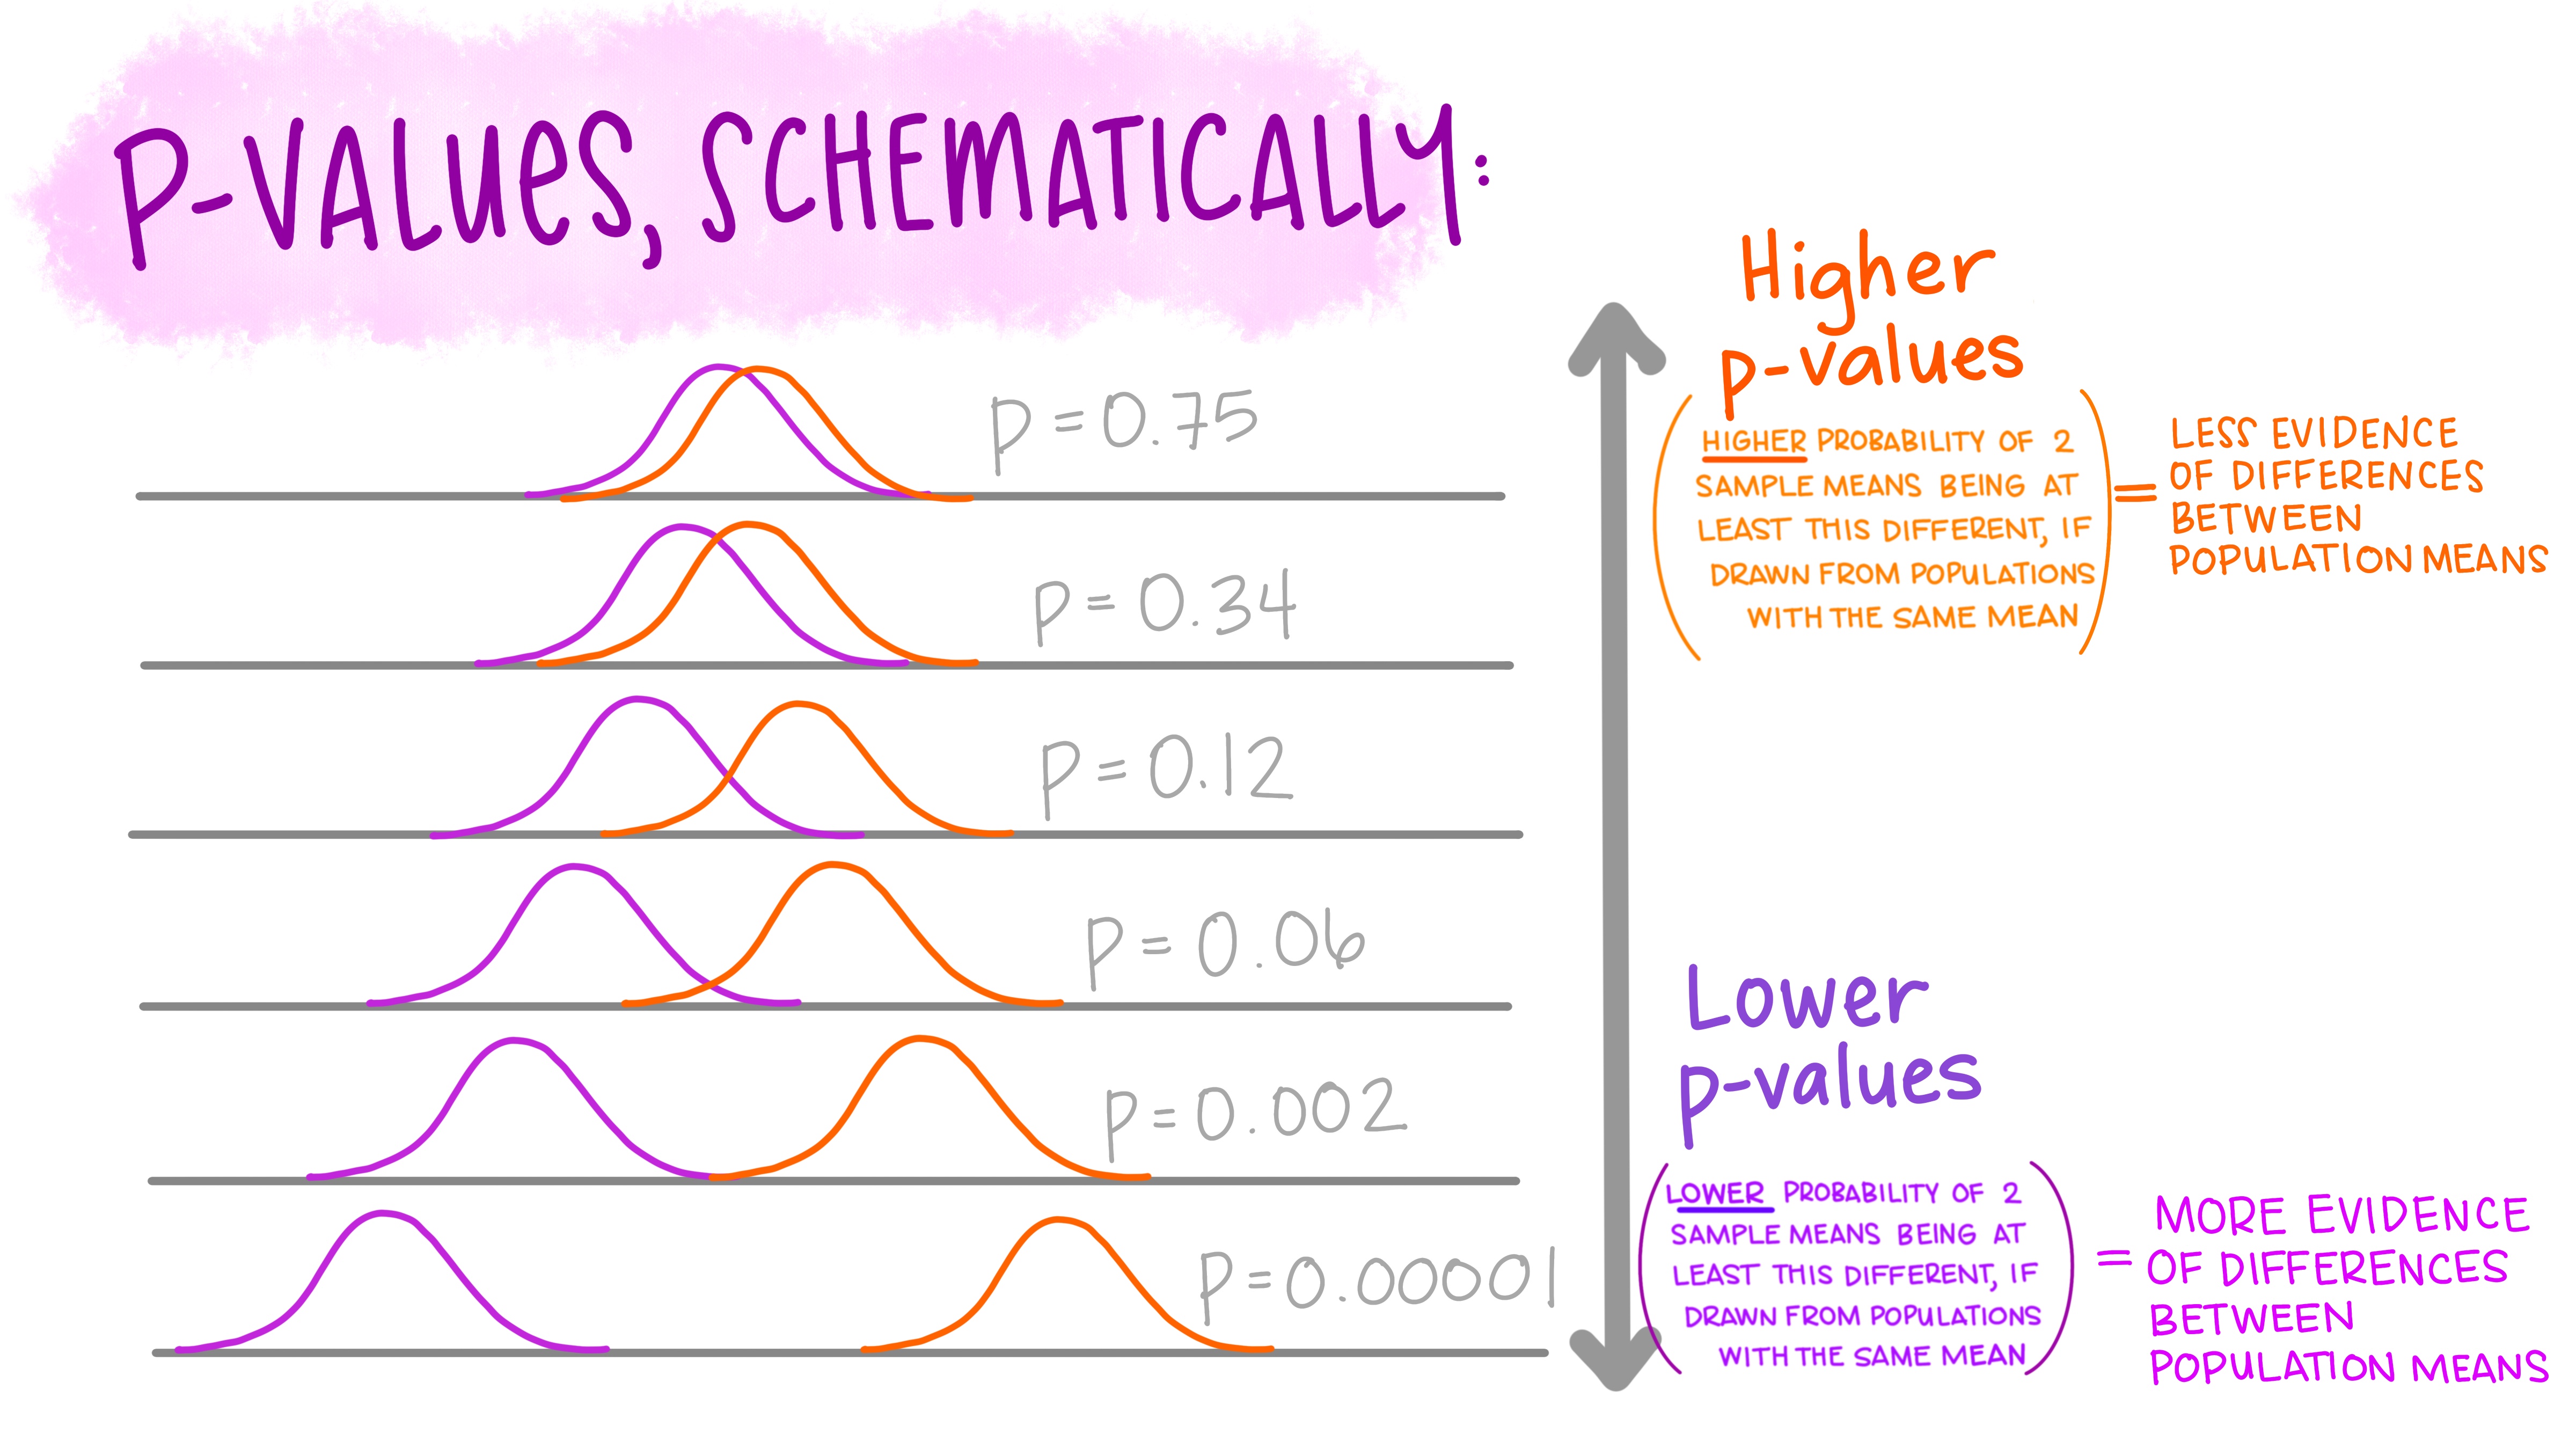 P-VALUES, SCHEMATICALLY:
p = 0.75
p = 0.34
p = 0.12
p = 0.06
p = 0.002
p = 0.00001
Higher
p-values
(HIGHER PROBABILITY OF 2
SAMPLE MEANS BEING AT
LEAST THIS DIFFERENT, IF
DRAWN FROM POPULATIONS
WITH THE SAME MEAN)
= LESS EVIDENCE
OF DIFFERENCES
BETWEEN
POPULATION MEANS
Lower
p-values
(LOWER PROBABILITY OF 2
SAMPLE MEANS BEING AT
LEAST THIS DIFFERENT, IF
DRAWN FROM POPULATIONS
WITH THE SAME MEAN)
= MORE EVIDENCE
OF DIFFERENCES
BETWEEN
POPULATION MEANS